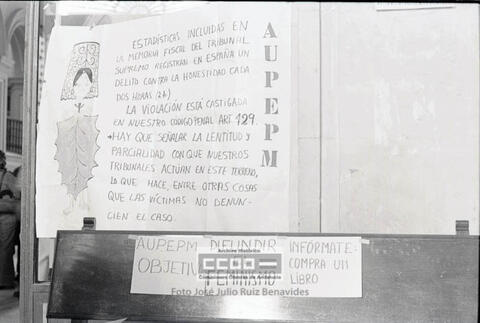 ESTADÍSTICAS INCLUIDAS EN
LA MEMORIA FISCAL DEL TRIBUNAL
SUPREMO REGISTRAN EN ESPAÑA UN
DELITO CONTRA LA HONESTIDAD CADA
DOS HORAS (2h)
LA VIOLACIÓN ESTÁ CASTIGADA
EN NUESTRO CÓDIGO PENAL ART. 429.
HAY QUE SEÑALAR LA LENTITUD Y
PARCIALIDAD CON QUE NUESTROS
TRIBUNALES ACTÚAN EN ESTE TERRENO,
LO QUE HACE, ENTRE OTRAS COSAS
QUE LAS VÍCTIMAS NO DENUN-
CIEN EL CASO.
AUPEPM
AUPEPM DIFUNDIR
OBJETIV FEMINISMO
INFÓRMATE-
COMPRA UN
LIBRO
Archivo Histórico
CCOO
Comisiones Obreras de Andalucía
Foto José Julio Ruiz Benavides